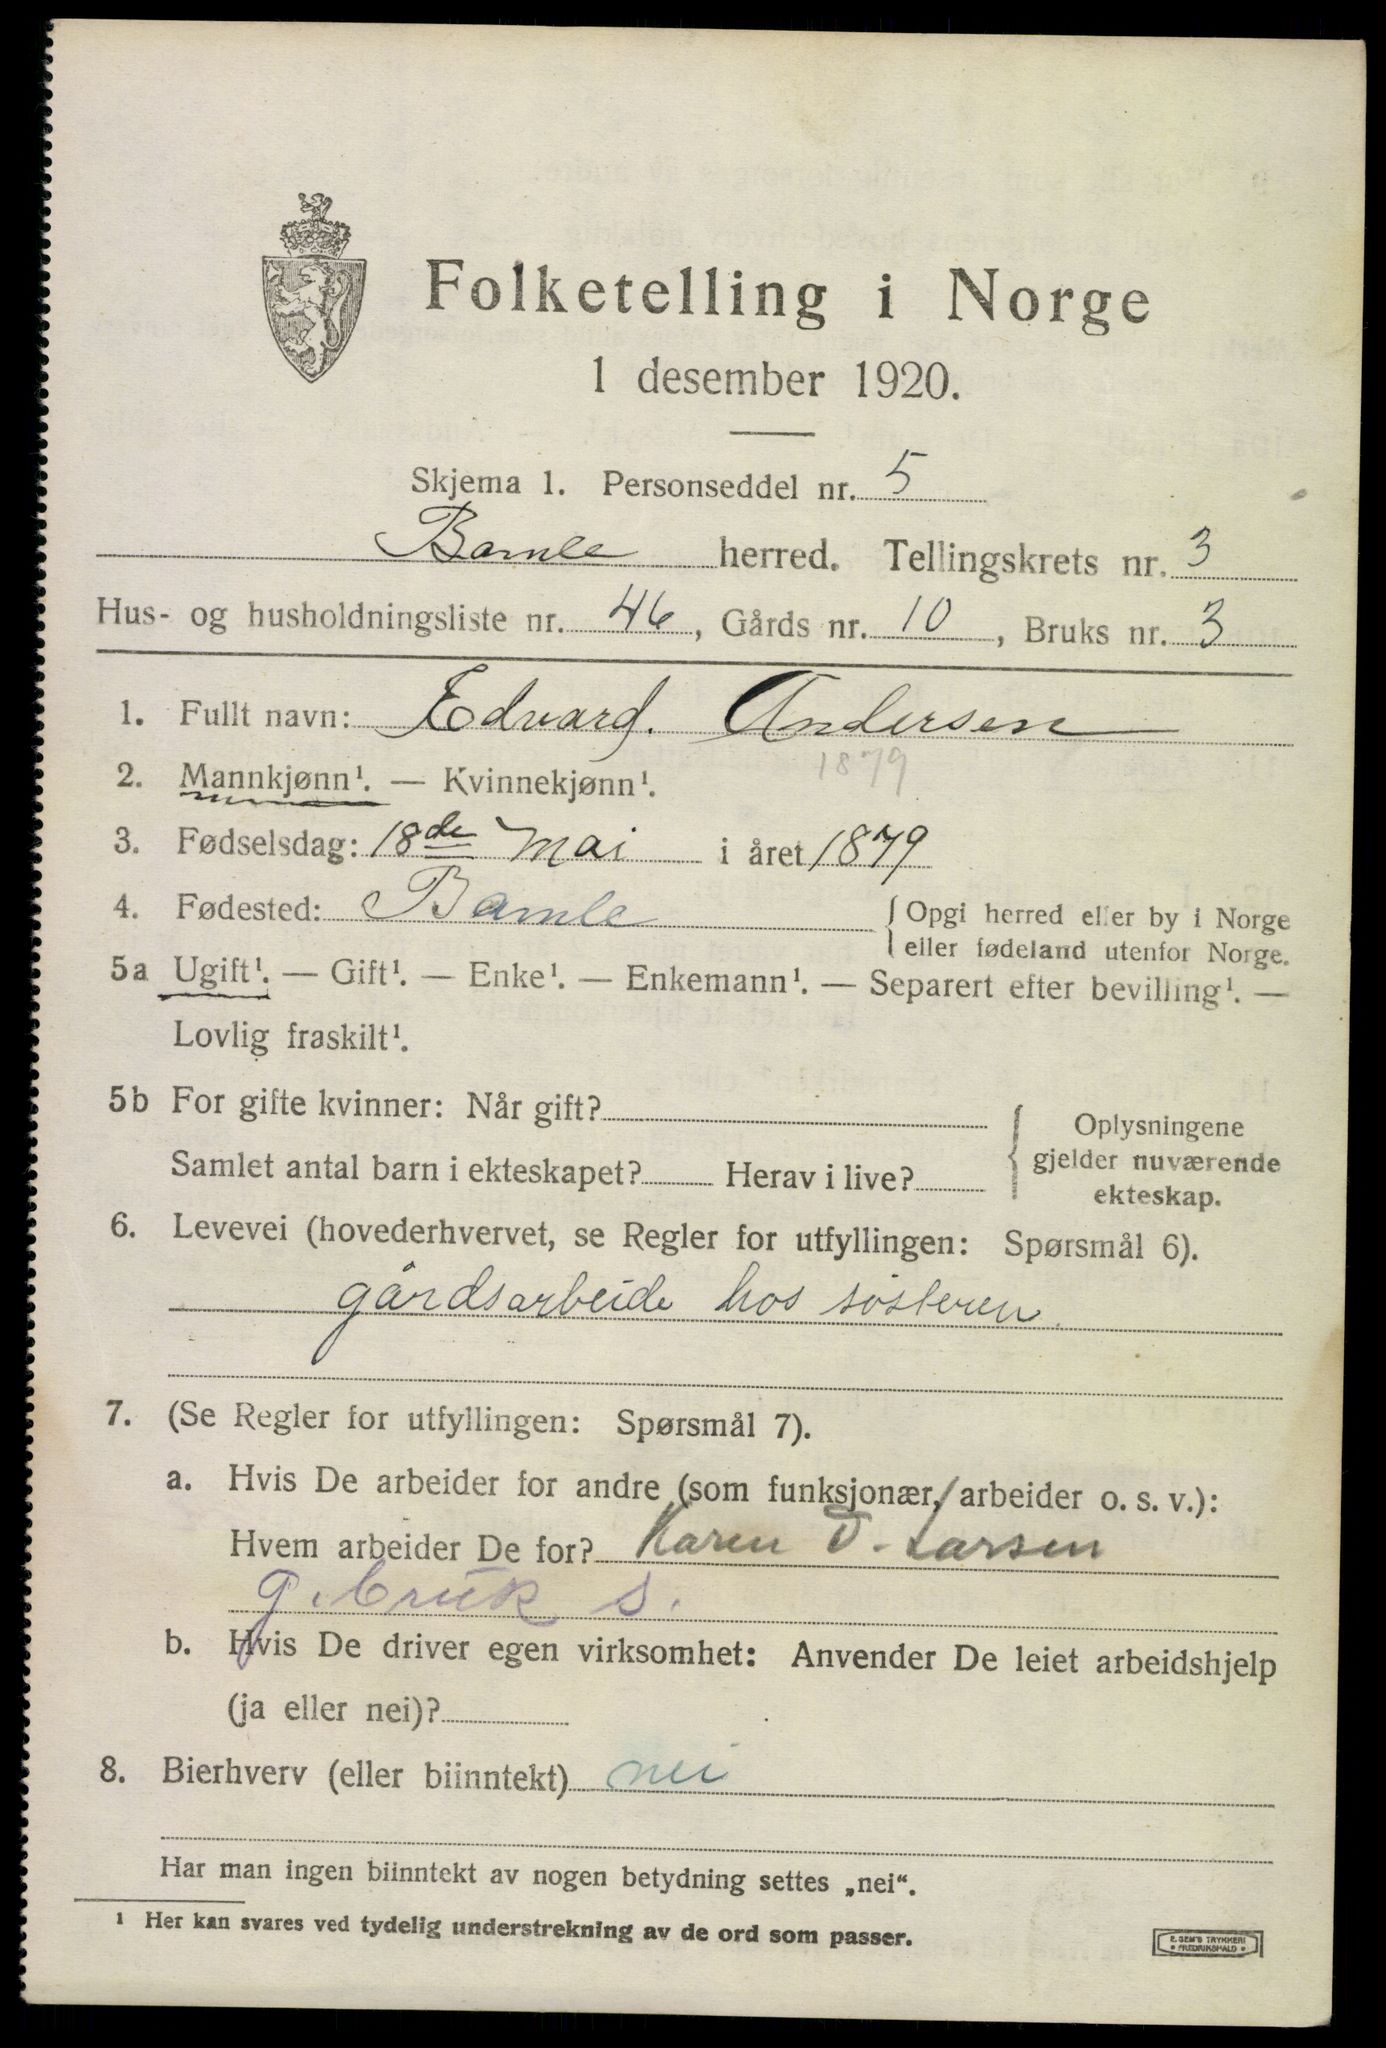 Folketelling i Norge
1 desember 1920.
Skjema 1. Personseddel nr. 5
Bamle herred. Tellingskrets nr. 3
Hus- og husholdningsliste nr. 46, Gårds nr. 10, Bruks nr. 3
1. Fullt navn: Edvard. Andersen
1879
2. Mannkjønn¹. — Kvinnekjønn¹.
3. Fødselsdag: 18de mai i året 1879
4. Fødested: Bamle { Opgi herred eller by i Norge
eller fødeland utenfor Norge.
5a Ugift¹. — Gift¹. — Enke¹. — Enkemann¹. — Separert efter bevilling¹. —
Lovlig fraskilt¹.
5b For gifte kvinner: Når gift?
Samlet antal barn i ekteskapet? Herav i live?
{ Oplysningene
gjelder nuværende
ekteskap.
6. Levevei (hovederhvervet, se Regler for utfyllingen: Spørsmål 6).
gårdsarbeide hos søsteren.
7. (Se Regler for utfyllingen: Spørsmål 7).
a. Hvis De arbeider for andre (som funksjonær, arbeider o. s. v.):
Hvem arbeider De for? Karen T. Larsen
g.bruk s.
b. Hvis De driver egen virksomhet: Anvender De leiet arbeidshjelp
(ja eller nei)?
8. Bierhverv (eller biinntekt) nei
Har man ingen biinntekt av nogen betydning settes „nei“.
¹ Her kan svares ved tydelig understrekning av de ord som passer.
E. SEM'S TRYKKERI
* FREDRIKSHALD *